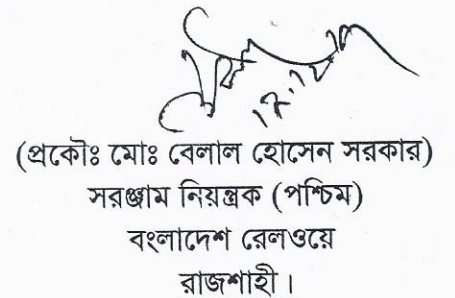 (প্রকৌঃ মোঃ বেলাল হোসেন সরকার)
সরঞ্জাম নিয়ন্ত্রক (পশ্চিম)
বংলাদেশ রেলওয়ে
রাজশাহী।